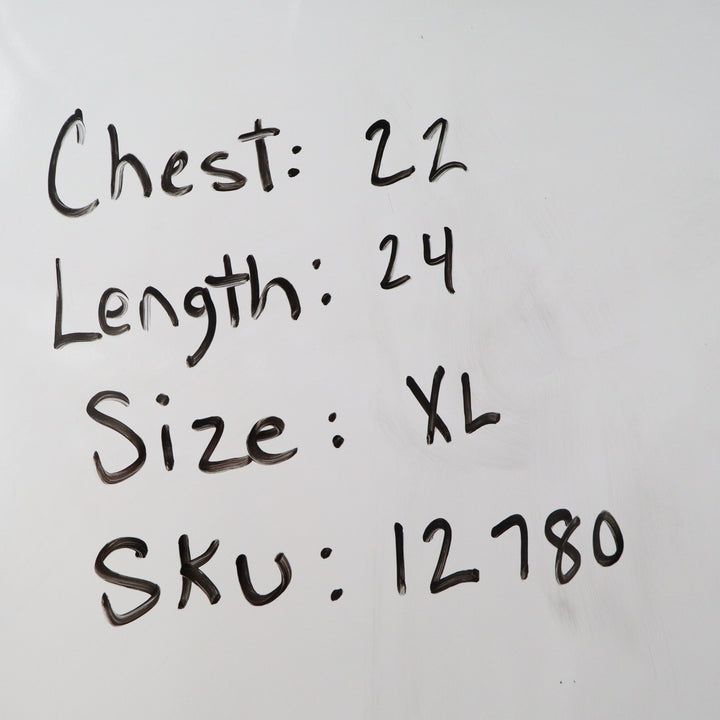 Chest: 22
Length: 24
Size: XL
SKU: 12780